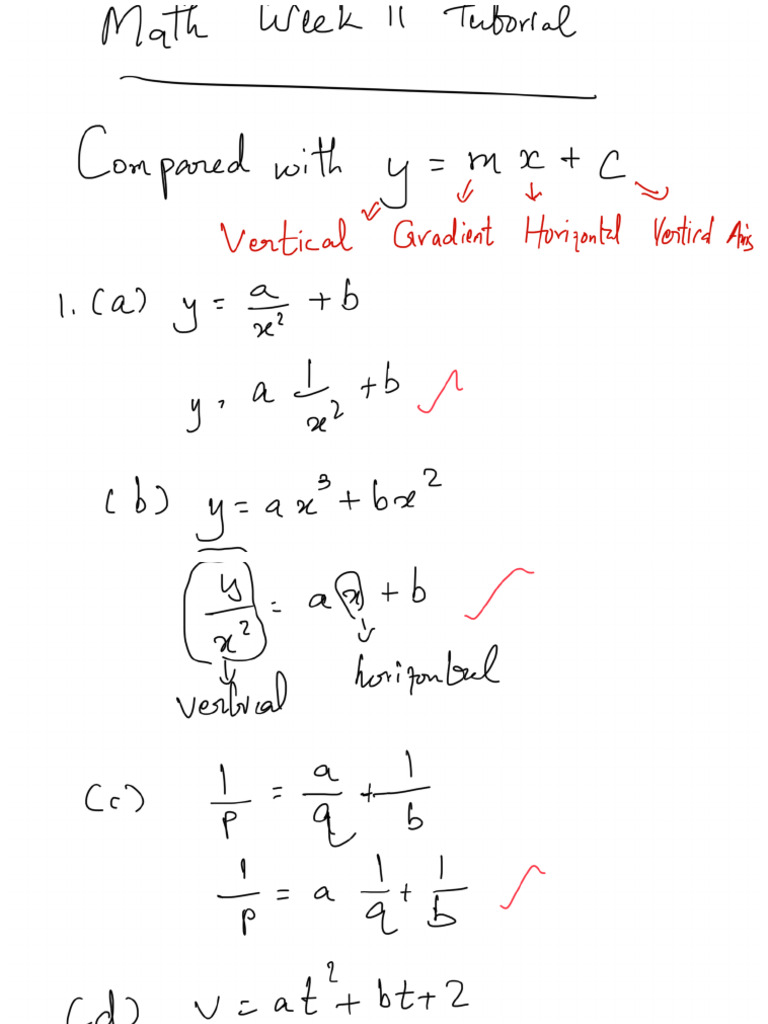 Math Week 11 Tutorial
Compared with y = m x + c
Vertical Gradient Horizontal Vertical Axis
1. (a) y = a/x² + b
y = a 1/x² + b
(b) y = ax³ + bx²
y/x² = a x + b
vertical horizontal
(c) 1/p = a/q + 1/b
1/p = a 1/q + 1/b
(d) v = at² + bt + 2